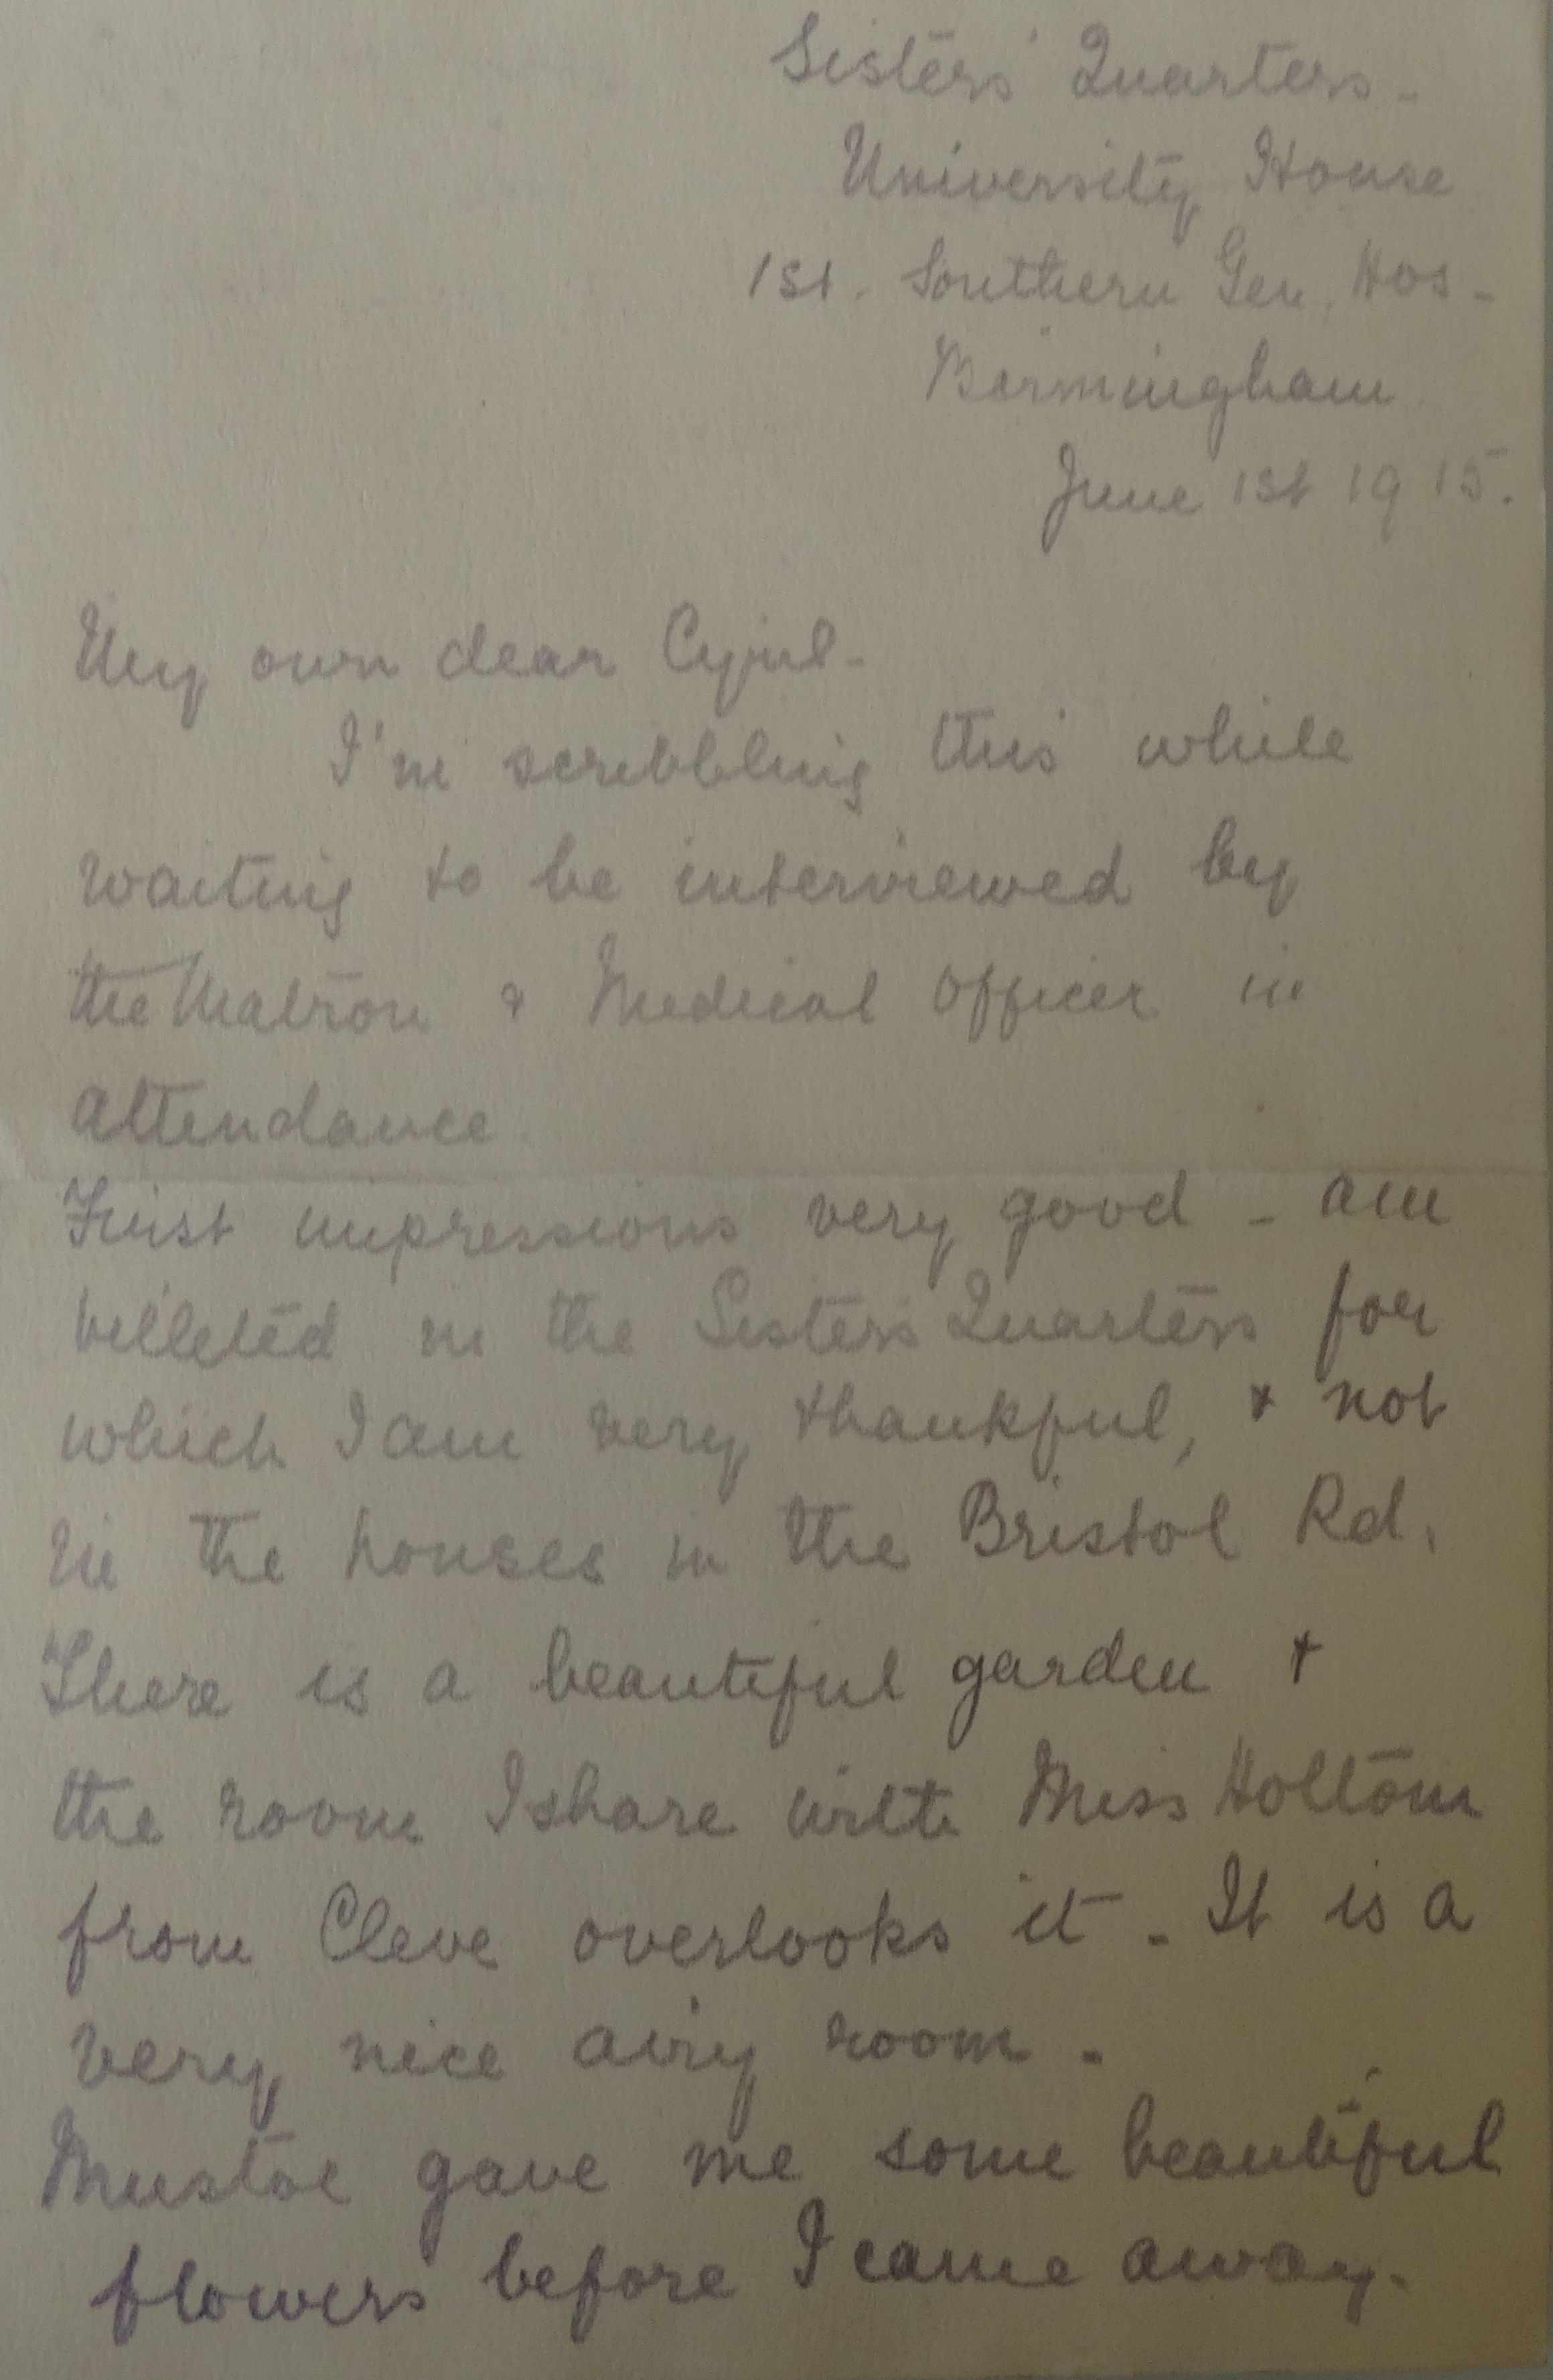 Sisters' Quarters -
University House
1st. Southern Gen. Hos -
Birmingham
June 1st 1915.
My own dear Cyril -
I'm scribbling this while
waiting to be interviewed by
the Matron & Medical Officer in
attendance.
First impressions very good - am
billeted in the Sisters Quarters for
which I am very thankful, & not
in the houses in the Bristol Rd.
There is a beautiful garden &
the room I share with Miss Holtom
from Cleve overlooks it - It is a
very nice airy room -
Mustoe gave me some beautiful
flowers before I came away.